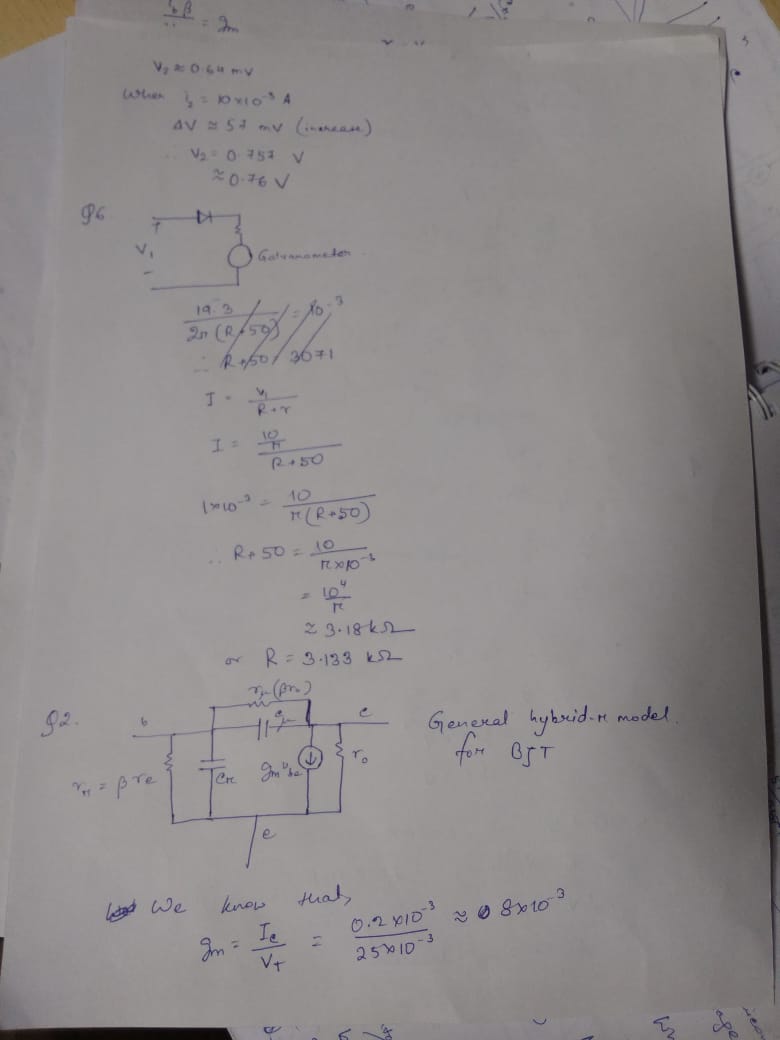 β
= gm
V₂ ≈ 0.64 mV
When i₂ = 10×10⁻³ A
ΔV ≈ 57 mV (increase)
∴ V₂ = 0.757 V
≈ 0.76 V
Q6
+
V₁
-
Galvanometer
19.3 / 2π(R+50) = 10⁻³
∴ R+50 = 3071
I = V₁ / R+r
I = 10/π / R+50
1×10⁻³ = 10 / π(R+50)
∴ R+50 = 10 / π×10⁻³
= 10⁴ / π
≈ 3.18 kΩ
or R = 3.133 kΩ
Q2.
rμ(βro)
b
Cμ
c
General hybrid-π model
for BJT
rπ = βre
Cπ
gm vbe
ro
e
We know that,
gm = Ic / VT = 0.2×10⁻³ / 25×10⁻³ ≈ 8×10⁻³